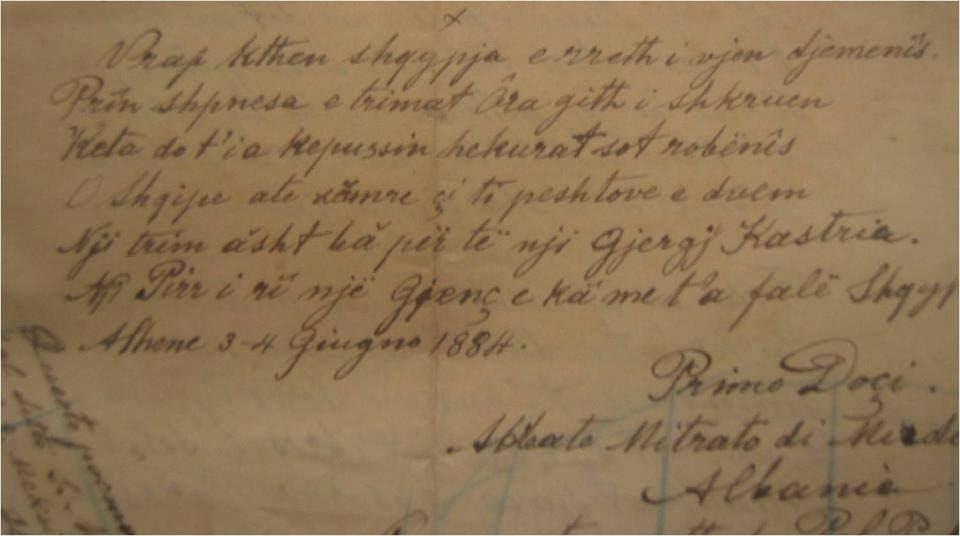 x
Vrap kthen shqypja e rreth i vjen djemenîs.
Prîn shpnesa e trimat Ôra gith i shkruen
Keta do t'ia kepussin hekurat sot robënîs
O Shqipe ate zâmre çi ti peshtove e duem
Nji trim âsht bâ për të nji Gjergj Kastria.
Nji Pirr i rî një Gjenç e kâ me t'a falë Shqyp
Athene 3-4 Giugno 1884.
Primo Doçi.
Abbate Mitrato di Mird
Albania
Questa poesia